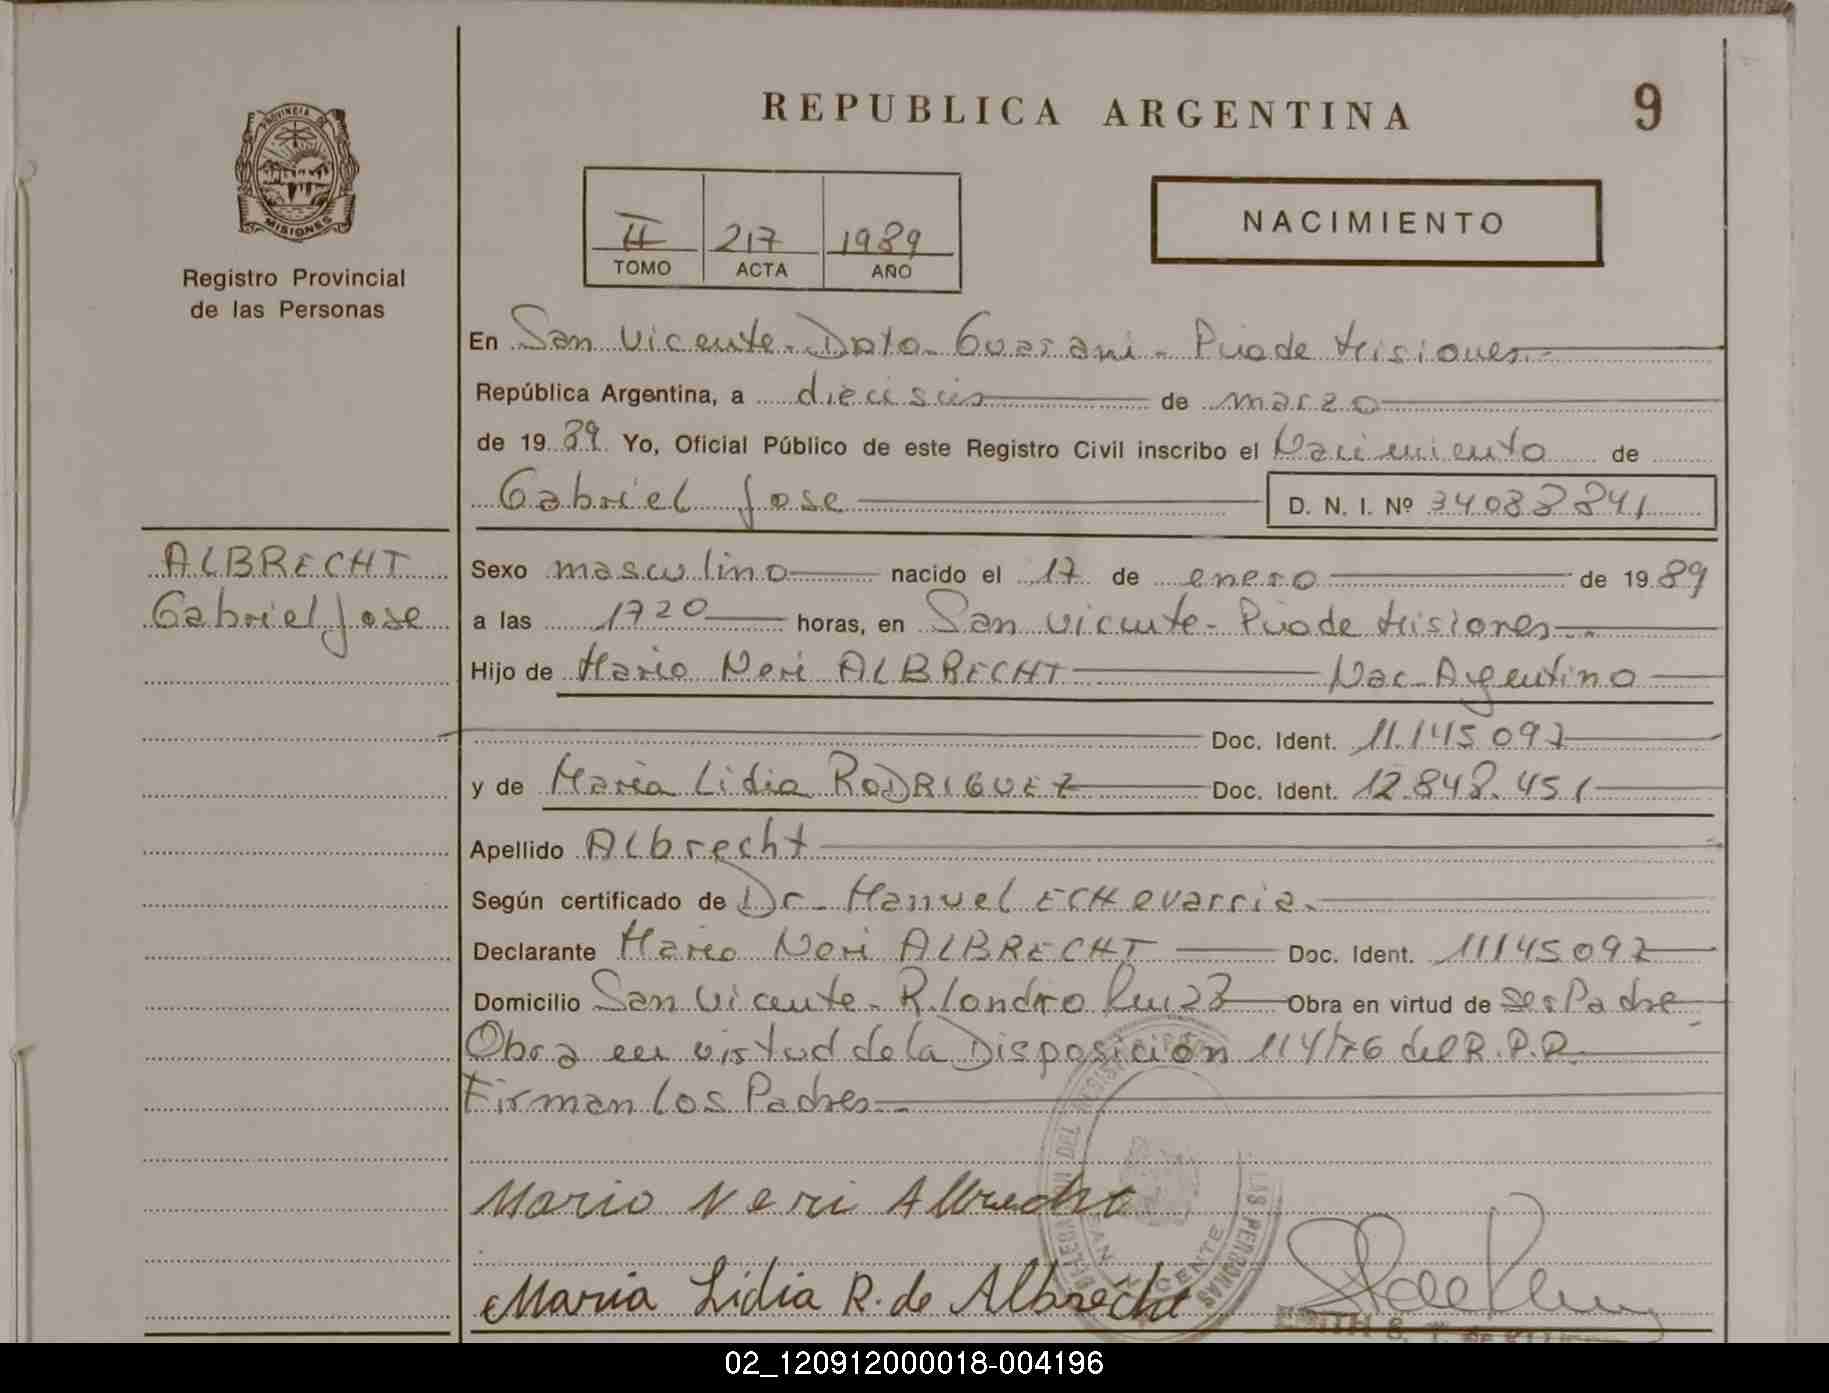 REPUBLICA ARGENTINA
9
PROVINCIA DE
MISIONES
Registro Provincial
de las Personas
II 217 1989
TOMO ACTA AÑO
NACIMIENTO
En San Vicente - Dpto. Guarani - Pcia de Misiones.-
República Argentina, a dieciseis de marzo
de 19 89 Yo, Oficial Público de este Registro Civil inscribo el Nacimiento de
Gabriel Jose D. N. I. Nº 34088841
ALBRECHT
Gabriel Jose
Sexo masculino nacido el 17 de enero de 19 89
a las 1720 horas, en San Vicente - Pcia de Misiones.-
Hijo de Mario Neri ALBRECHT Nac. Argentino
Doc. Ident. 11.145.097
y de Maria Lidia RODRIGUEZ Doc. Ident. 12.848.451
Apellido Albrecht
Según certificado de Dr. Manuel ECHevarria.
Declarante Mario Neri ALBRECHT Doc. Ident. 11145097
Domicilio San Vicente - Obra en virtud de ser Padre
Obra en virtud de la Disposición 114/76 del R.P.P.
Firman los Padres.-
Mario Neri Albrecht
Maria Lidia R. de Albrecht
DELEGACION DEL REGISTRO LAS PERSONAS
SAN VICENTE
02_120912000018-004196